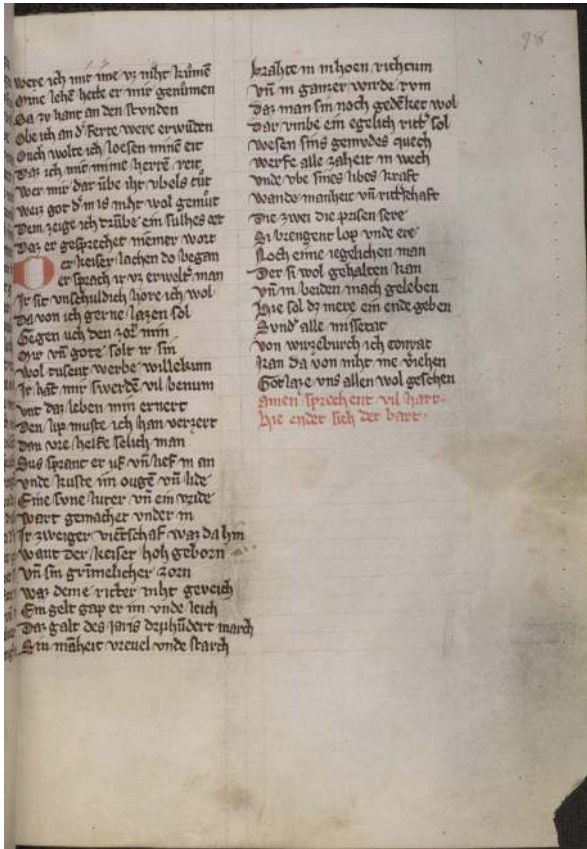 98
were ich mit ime vz niht kumē
Mine lehē hette er mir genumen
Sa zv hant an den stvnden
Obe ich an dˢ ferte were erwūden
Ouch wolte ich loesen minē eit
Daz ich mit mime herrē reit
Wer mir dar vūbe iht vbels tůt
Weiz got dˢ m is niht wol gemůt
Dem zeige ich drūbe ein sulhes ort
Daz er gesprechet niemer wort
Der keiser lachen do began
er sprach ir vz erweltˢ man
Ir sit vnschuldich hore ich wol
Da von ich gerne lazen sol
Gegen uch den zorˢ min
Mir vn̄ gote solt ir sin
Wol tusent werbe willekum
Ir hāt mir swerdē vil benum
vnt daz leben min ernert
Den lip muste ich han verzert
Dan vre helfe selich man
Sus spranc er uf vn̄ lief in an
vnde kuste im ougē vn̄ lide
Eine svne luter vn̄ ein vride
Wart gemachet vnder in
Ir zweiger vientschaf waz da hin
Want der keiser hoh geborn
Vn̄ sin grimelicher zorn
Waz deme ritter niht geveich
Ein gelt gap er im vnde leich
Daz galt des iaris druhūdert march
Sin māheit vrevel vnde starch
brahte in in hoen richtum
Vn̄ in ganzer wirde rvm
Daz man sin noch gedēket wol
Dar vmbe ein egelich rittˢ sol
Wesen sins gemvdes quech
Werfe alle zaheit in wech
Vnde vbe sines libes kraft
Wande manheit vn̄ ritschaft
Die zwei die prisen sere
Si brengent lop vnde ere
Noch eime iegelichen man
Der si wol gehalten kan
Vn̄ in beiden mach geleben
Hie sol dz mere ein ende geben
Svndˢ alle missetat
Von wirzeburch ich conrat
Kan da von niht me viehen
Got laze vns allen wol geschen
amen sprechent vil hart.
hie endet sich der bart.